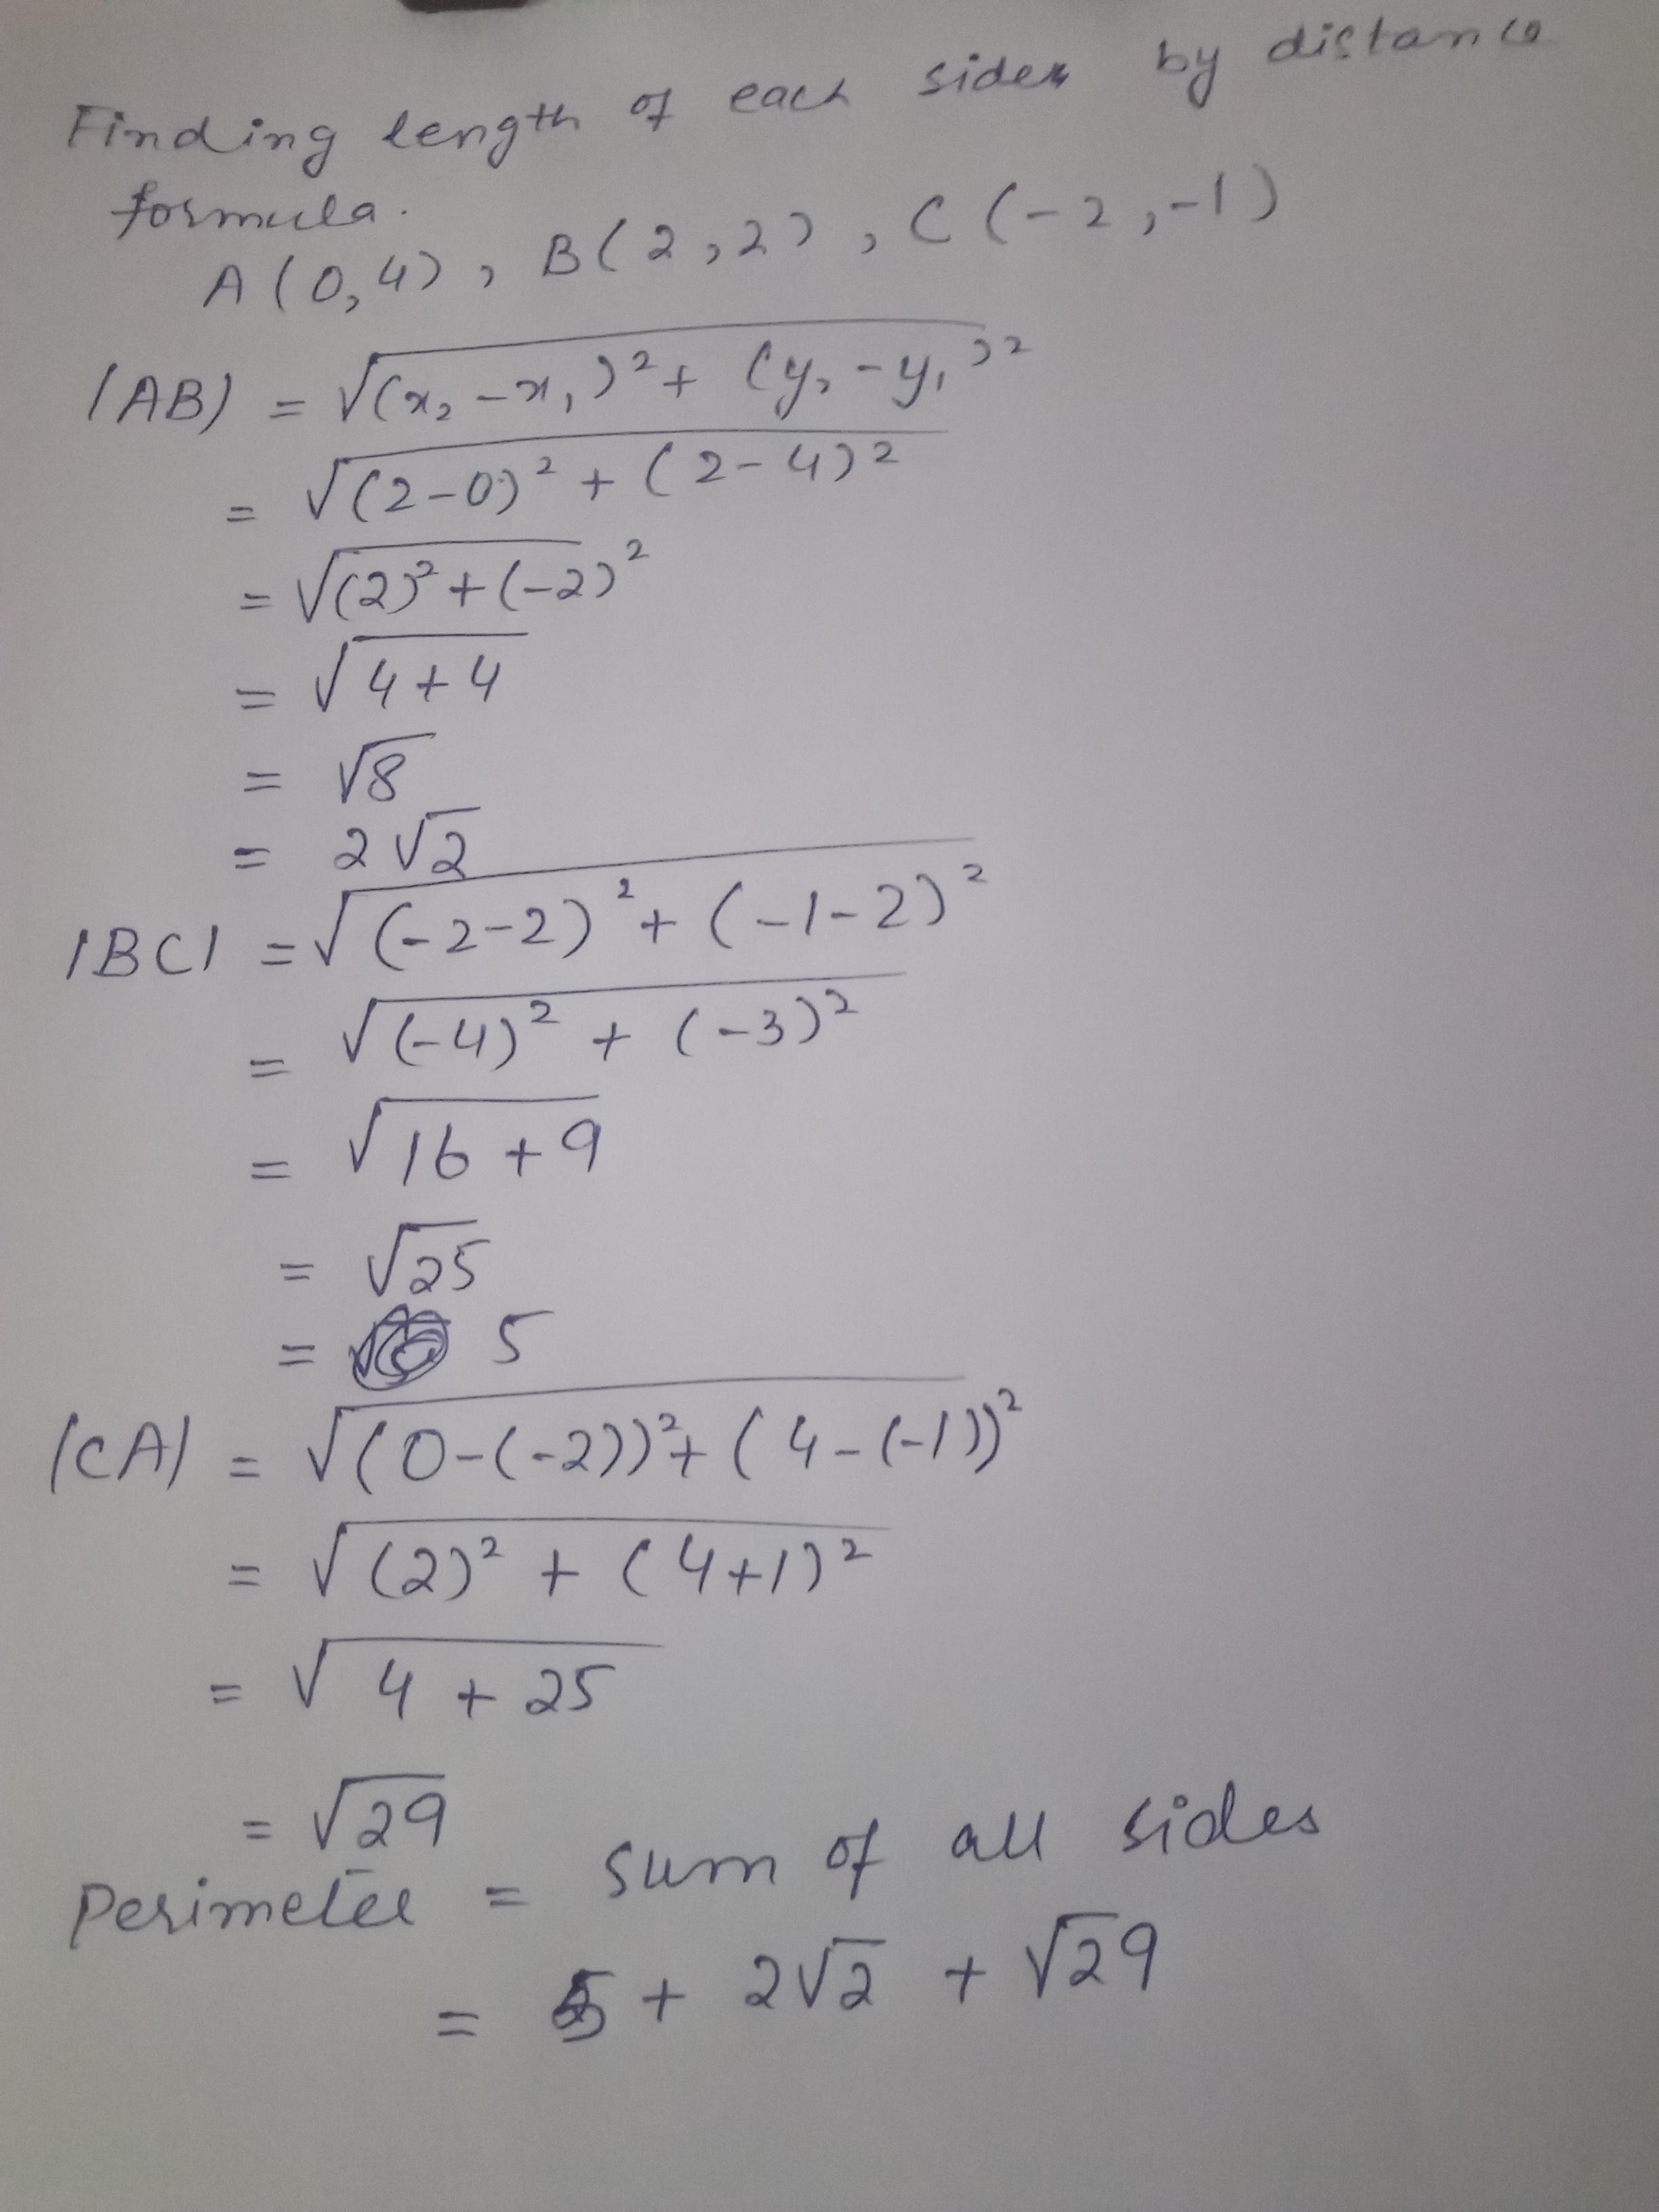 Finding length of each sides by distance
formula.
A(0,4), B(2,2), C(-2,-1)
|AB| = √(x₂-x₁)²+(y₂-y₁)²
= √(2-0)²+(2-4)²
= √(2)²+(-2)²
= √4+4
= √8
= 2√2
|BC| = √(-2-2)²+(-1-2)²
= √(-4)²+(-3)²
= √16+9
= √25
= 5
|CA| = √(0-(-2))²+(4-(-1))²
= √(2)²+(4+1)²
= √4+25
= √29
Perimeter = sum of all sides
= 5+2√2+√29